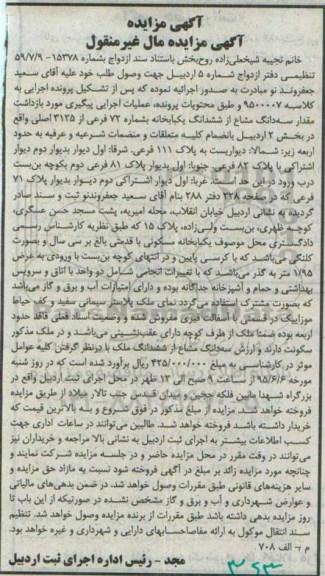 آگهی مزایده
آگهی مزایده مال غیرمنقول
خانم نجیبه شیخعلی‌زاده روح‌بخش باستناد سند ازدواج بشماره ۱۵۳۷۸- ۵۹/۷/۹
تنظیمی دفتر ازدواج شماره ۵ اردبیل جهت وصول طلب خود علیه آقای سعید
جعفروند نو مبادرت به صدور اجرائیه نموده که پس از تشکیل پرونده اجرایی به
کلاسه ۹۵۰۰۰۰۷ و طبق محتویات پرونده، عملیات اجرایی پیگیری مورد بازداشت
مقدار سه‌دانگ مشاع از ششدانگ یکبابخانه بشماره ۷۲ فرعی از ۳۱۲۵ اصلی واقع
در بخش ۲ اردبیل بانضمام کلیه متعلقات و منضمات شرعیه و عرفیه به حدود
اربعه زیر: شمالا: دیواریست به پلاک ۱۱۱ فرعی. شرقا: اول دیوار بدیوار دوم دیوار
اشتراکی با پلاک ۸۲ فرعی جنوبا: اول بدیوار پلاک ۸۱ فرعی دوم بکوچه بن‌بست
درب ورود در این حد است. غربا: اول دیوار اشتراکی دوم دیوار بدیوار پلاک ۷۱
فرعی که در صفحه ۳۲۸ دفتر ۲۸۸ بنام آقای سعید جعفروندنو ثبت و سند صادر
گردیده به نشانی اردبیل خیابان انقلاب، محله امیریه، پشت مسجد حسن عسگری،
کوچه ظهری، بن‌بست ولی‌زاده، پلاک ۱۵ که طبق نظریه کارشناس رسمی
دادگستری محل موصوف یکبابخانه مسکونی با قدمتی بالغ بر سی سال و بصورت
کلنگی می‌باشد که با کرسی پایین و در انتهای کوچه بن‌بست با ورودی به عرض
۱/۹۵ متر به گذر می‌باشد که با تغییرات انجامی شامل دو واحد با اتاق و سرویس
بهداشتی و حمام و آشپزخانه جداگانه بوده و دارای امتیازات آب و برق و گاز می‌باشد
که بصورت مشترک استفاده می‌گردد نمای ملک پلاستر سیمانی سفید و کف حیاط
موزاییک در قسمتی با آسفالت قیری مفروش شده و وضعیت اسناد فعلی فاقد حدود
اربعه بوده ضمنا ملک از طرف کوچه دارای عقب‌نشینی می‌باشد و در ملک مذکور
سکونت دارند و ارزش سه‌دانگ مشاع از ششدانگ ملک با درنظر گرفتن کلیه عوامل
موثر در کارشناسی به مبلغ ۴۲۵/۰۰۰/۰۰۰ ریال برآورد شده است که در روز شنبه
مورخه ۹۵/۶/۶ از ساعت ۹ صبح الی ۱۲ ظهر در محل اجرای ثبت اردبیل واقع در
بزرگراه شهدا مابین فلکه ججین و میدان قدس جنب تالار میلاد از طریق مزایده
فروخته خواهد شد. مزایده از مبلغ مذکور در فوق شروع و به بالاترین قیمت که
خریدار داشته باشد فروخته خواهد شد. طالبین می‌توانند در ساعات اداری جهت
کسب اطلاعات بیشتر به اجرای ثبت اردبیل به نشانی بالا مراجعه و خریداران نیز
می‌توانند در وقت مقرر در محل مزایده حاضر و در جلسه مزایده شرکت نمایند و
چنانچه مورد مزایده زائد بر مبلغ در آگهی فروخته شود نسبت به مازاد حق مزایده و
سایر هزینه‌های قانونی طبق مقررات وصول خواهد شد، در ضمن بدهی‌های مالیاتی
و عوارض شهرداری و آب و برق و گاز مشخص نشده در صورتیکه از این باب تا
روز مزایده بدهی داشته باشد طبق مقررات از برنده مزایده وصول خواهد شد. تنظیم
سند انتقال موکول به ارائه مفاصاحسابهای دارایی و شهرداری و غیره خواهد بود.
م و- الف ۷۰۸
مجد - رئیس اداره اجرای ثبت اردبیل